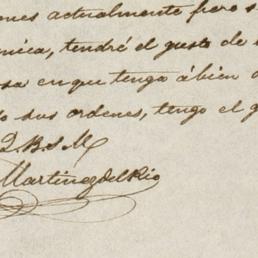 ones actualmente pero s
mica, tendré el gusto de
sa en que tengo á bien
do sus ordenes, tengo el g
Q.B.S.M
Martinez del Rio